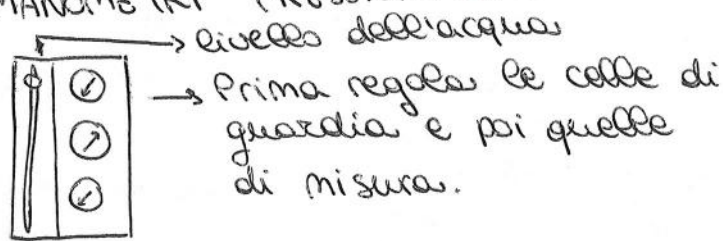 livello dell'acqua
Prima regola le celle di
guardia e poi quelle
di misura.